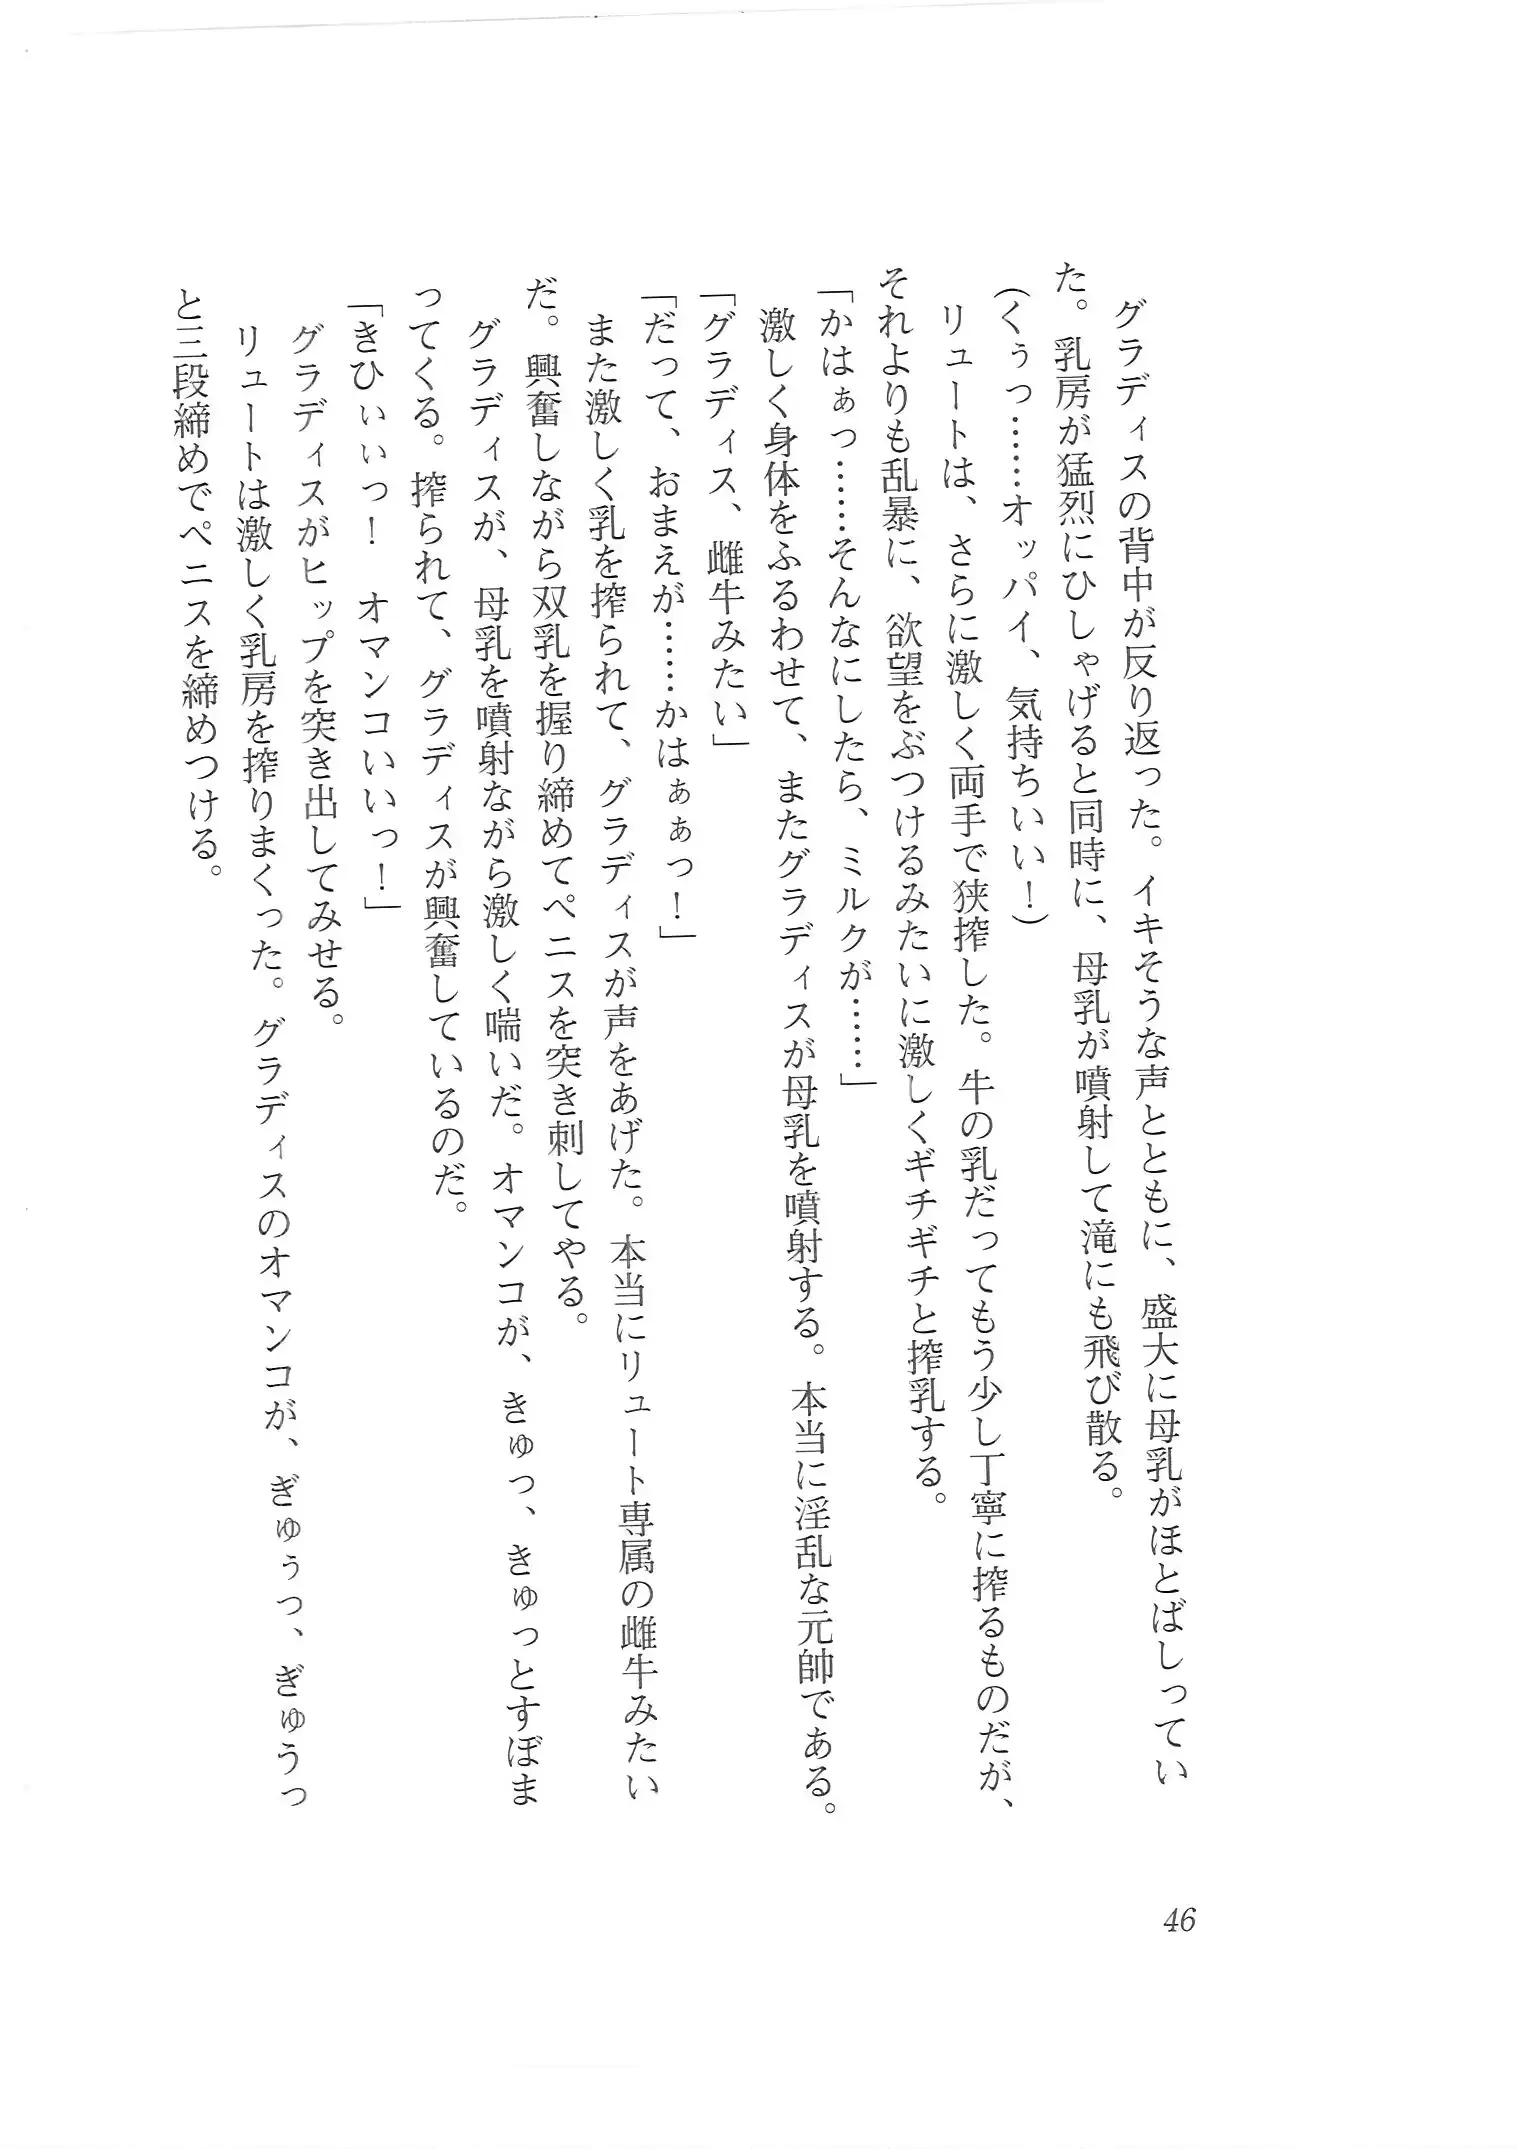 グラディスの背中が反り返った。イキそうな声とともに、盛大に母乳がほとばしってい
た。乳房が猛烈にひしゃげると同時に、母乳が噴射して滝にも飛び散る。
(くぅっ……オッパイ、気持ちいい！)
リュートは、さらに激しく両手で狭搾した。牛の乳だってもう少し丁寧に搾るものだが、
それよりも乱暴に、欲望をぶつけるみたいに激しくギチギチと搾乳する。
「かはぁっ……そんなにしたら、ミルクが……」
激しく身体をふるわせて、またグラディスが母乳を噴射する。本当に淫乱な元帥である。
「グラディス、雌牛みたい」
「だって、おまえが……かはぁぁっ！」
また激しく乳を搾られて、グラディスが声をあげた。本当にリュート専属の雌牛みたい
だ。興奮しながら双乳を握り締めてペニスを突き刺してやる。
グラディスが、母乳を噴射ながら激しく喘いだ。オマンコが、きゅっ、きゅっとすぼま
ってくる。搾られて、グラディスが興奮しているのだ。
「きひぃぃっ！　オマンコいいっ！」
グラディスがヒップを突き出してみせる。
リュートは激しく乳房を搾りまくった。グラディスのオマンコが、ぎゅぅっ、ぎゅうっ
と三段締めでペニスを締めつける。
46